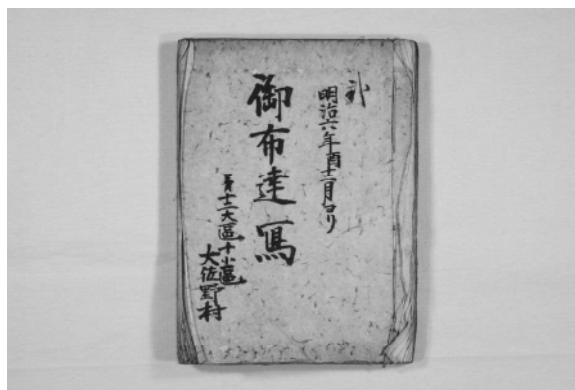 明治六年酉十二月ヨリ
御布達寫
第十二大區十小區
大佐野村